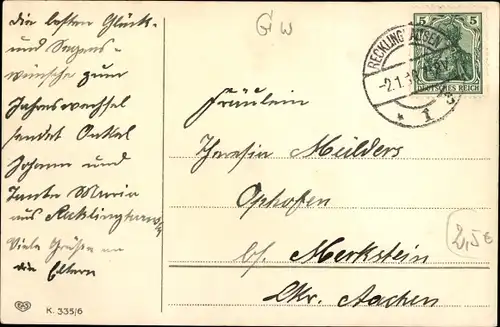 die besten Glück-
und Segens-
wünsche zum
Jahreswechsel
sendet Onkel
Johann und
Tante Maria
aus Recklinghausen
Viele Grüße an
die Eltern
G W
RECKLINGHAUSEN
-2.1.
* 1
5 5
DEUTSCHES REICH
Fräulein
Mülders
Ophofen
bf. Merkstein
Lkr. Aachen
2,5€
EAS
K. 335/6